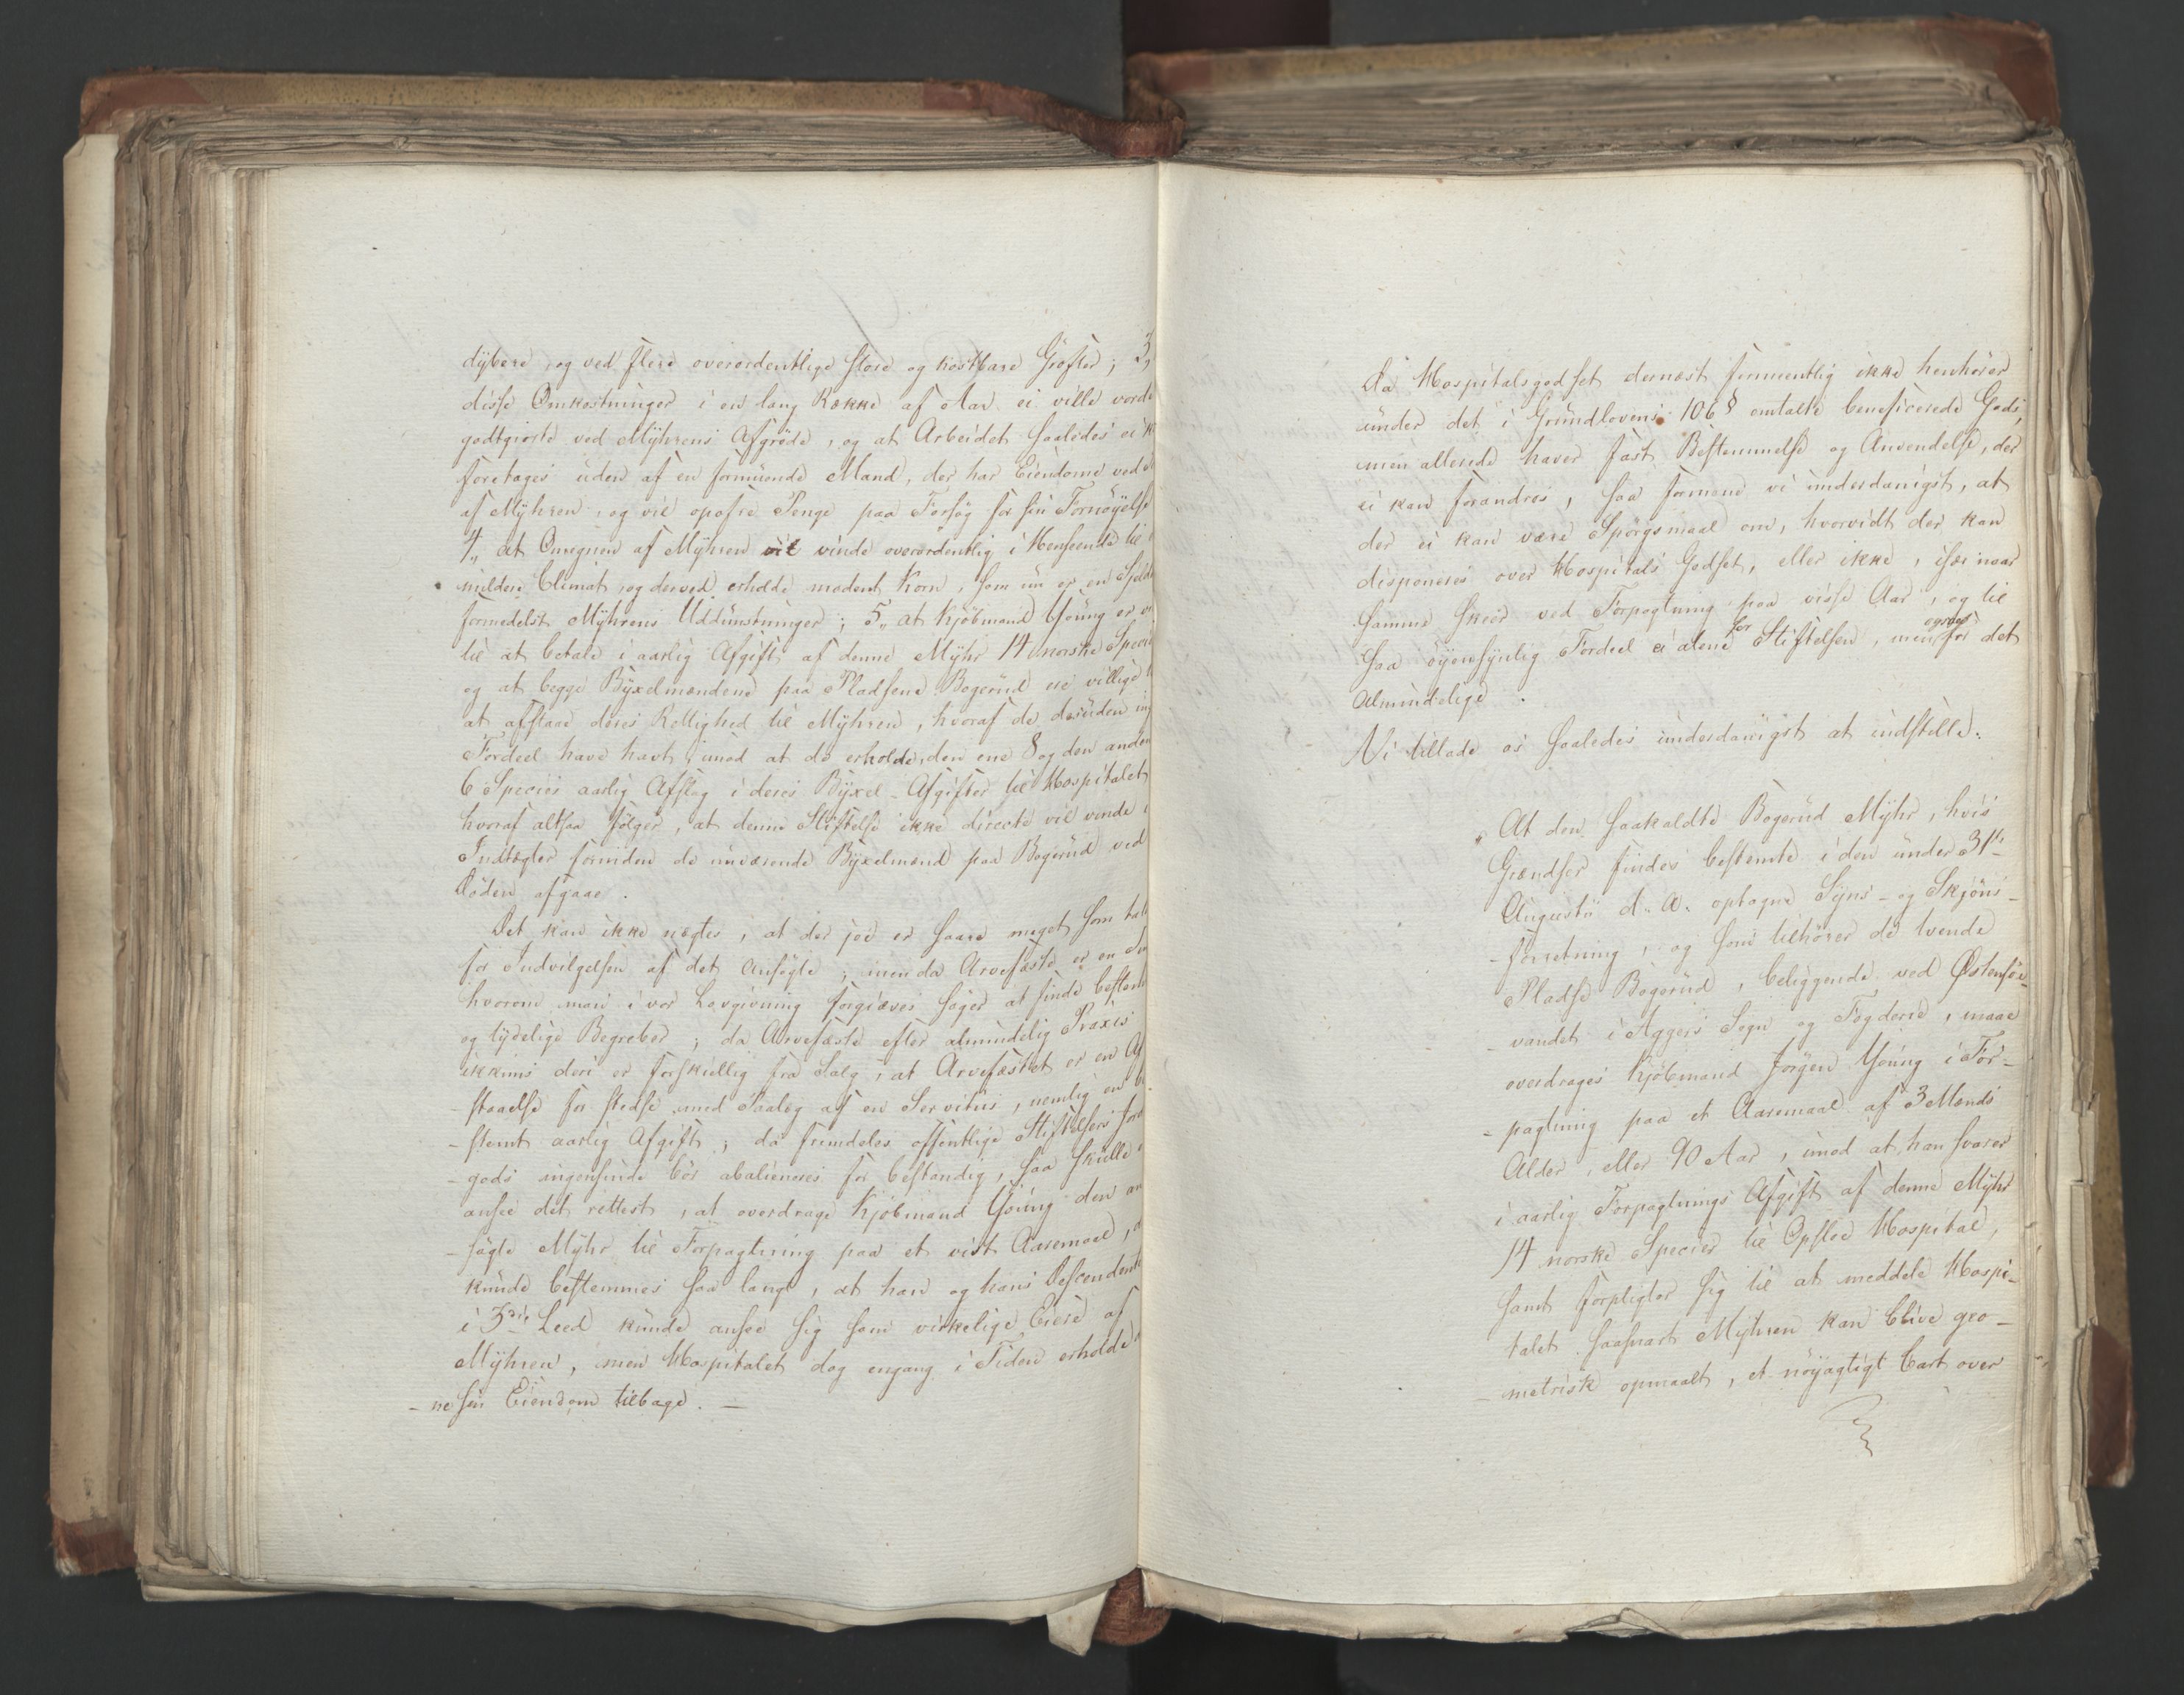 dybere, og ved flere overordentlige store og kostbare Grøfter; 3,
disse Omkostninger i en lang Række af Aar ei ville vorde
godtgiorte ved Myhrens Afgrøde, og at Arbeidet saaledes ei k
foretages uden af en formuende Mand, der har Eiendome ved
af Myhren, og vil opofre Penge paa Forsøg for sin Fornøyelse
4,, at Omegnen af Myhren vil vinde overordentlig i Henseende til
mildere Climat, og derved erholde modent Korn, som nu er en Sjeld
formedelst Myhrens Uddunstninger; 5,, at Kjøbmand Young er
til at betale i aarlig Afgift af denne Myhr 14 norske Speci
og at begge Byxelmændene paa Pladsene Bogerud ere villige
at afstaae deres Rettighed til Myhren, hvoraf de desuden in
Fordeel have havt, imod at de erholde, den ene 8 og den anden
6 Species aarlig Afslag i deres Byxel-Afgifter til Hospitalet
hvoraf altsaa følger, at denne Stiftelse ikke directe vil vinde i
Indtægter forinden de nuværende Byxelmænd paa Bogerud ved
Døden afgaae.
Det kan ikke nægtes, at der jo er saare meget som tal
for Indvilgelsen af det Ansøgte; men da Arvefæste er en
hvorom man i vor Lovgivning forgjæves søger at finde bestem
og tydelige Begreber; da Arvefæste efter almindelig Praxis
ikkuns deri er forskiellig fra Salg, at Arvefæstet er en Af
-staaelse for stedse med Paalæg af en Servitus, nemlig en be
-stemt aarlig Afgift; da fremdeles offentlige Stiftelsers Jord
-gods ingensinde bør abalieneres for bestandig, saa skulle
ansee det rettest, at overdrage Kjøbmand Young den an
-søgte Myhr til Forpagtning paa et vist Aaremaal,
kunde bestemmes saa langt, at han og hans Descendente
i 3die Leed kunde ansee sig som virkelige Eiere af
Myhren, men Hospitalet dog engang i Tiden erholde
-ne sin Eiendom tilbage. —
Da Hospitalsgodset dernæst formeentlig ikke henhører
under det i Grundlovens 106 § omtalte beneficerede Gods,
men allerede haver fast Bestemmelse og Anvendelse, der
ei kan forandres, saa formene vi underdanigst, at
der ei kan være Spørgsmaal om, hvorvidt der kan
disponeres over Hospitals Godset, eller ikke, især naar
samme skeer ved Forpagtning paa visse Aar, og til
saa øyensynlig Fordeel ei alene for Stiftelsen, men ogsaa for det
Almindelige.
Vi tillade os saaledes underdanigst at indstille:
„At den saakaldte Bogerud Myhr, hvis
Grændser findes bestemte i den under 31te
Augustii d. A. optagne Syns- og Skjøns-
-forretning, og som tilhører de tvende
Pladse Bogerud, beliggende ved Østensøe-
-vandet i Aggers Sogn og Fogderie, maae
overdrages Kjøbmand Jørgen Young i For-
-pagtning paa et Aaremaal af 3 Mands
Alder, eller 90 Aar, imod at han svarer
i aarlig Forpagtnings Afgift af denne Myhr
14 norske Species til Opsloe Hospital,
samt forpligter sig til at meddele Hospi-
talet saasnart Myhren kan blive geo-
-metrisk opmaalt, et nøyagtigt Cart over